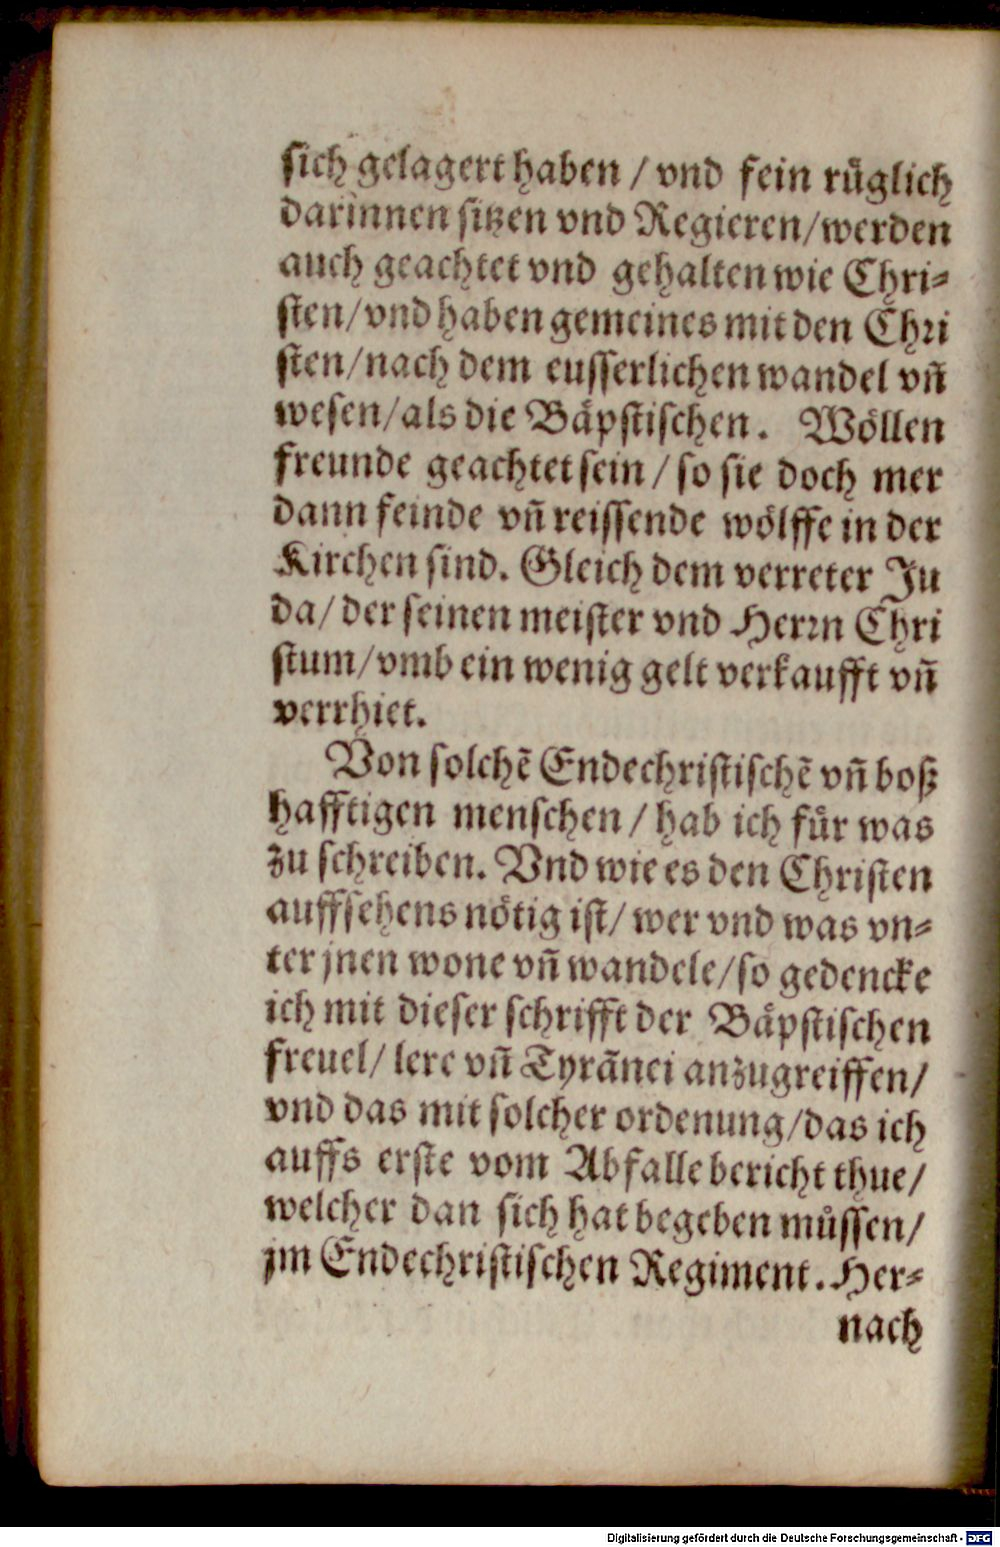 sich gelagert haben / vnd fein rüglich
darinnen sitzen vnd Regieren/werden
auch geachtet vnd gehalten wie Chri-
sten/vnd haben gemeines mit den Chri
sten/nach dem eusserlichen wandel vñ
wesen/als die Bäpstischen. Wöllen
freunde geachtet sein / so sie doch mer
dann feinde vñ reissende wölffe in der
Kirchen sind. Gleich dem verreter Ju
da/ der seinen meister vnd Herrn Chri
stum/vmb ein wenig gelt verkaufft vñ
verrhiet.
Von solchẽ Endechristischẽ vñ boß
hafftigen menschen / hab ich für was
zu schreiben. Vnd wie es den Christen
auffsehens nötig ist/ wer vnd was vn-
ter jnen wone vñ wandele/so gedencke
ich mit dieser schrifft der Bäpstischen
freuel/ lere vñ Tyrãnei anzugreiffen/
vnd das mit solcher ordenung/das ich
auffs erste vom Abfalle bericht thue/
welcher dan sich hat begeben müssen/
jm Endechristischen Regiment. Her-
nach
Digitalisierung gefördert durch die Deutsche Forschungsgemeinschaft - DFG